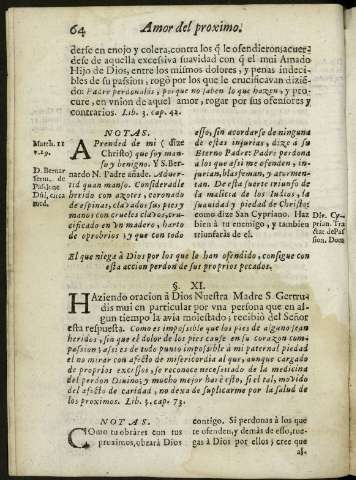 64 Amor del proximo.
derse en enojo y colera, contra los q̃ le ofendieron; acuer
dese de aquella excessiva suavidad con q̃ el mui Amado
Hijo de Dios, entre los mismos dolores, y penas indeci-
bles de su passion, rogò por los que le crucificavan dizié-
do: Padre perdonalos, porque no saben lo que hazen, y pro-
cure, en vnion de aquel amor, rogar por sus ofensores y
contrarios. Lib. 3. cap. 42.
NOTAS.
Match. 11
v. 29.
D. Bernar
Serm. de
Pass.
A Prended de mi (dize
Christo) que soy man-
so y benigno. Y S. Ber-
nardo N. Padre añade. Adver-
tid quan manso. Consideradle
herido con azotes, coronado
de espinas, clavados sus pies y
manos con crueles clavos, cru-
cificado en vn madero, harto
de oprobrios; y que con todo
esso, sin acordarse de ninguna
de estas injurias, dize a su
Eterno Padre: Padre perdona
a los que assi me ofenden, in-
jurian, blasfeman, y atormen-
tan. De esta suerte triunfo de
la malicia de los Indios, la
suavidad y piedad de Christo;
como dize San Cypriano. Haz
bien à tu enemigo, y tambien
triunfaràs de el.
Div. Cy-
prian. Tra
ctat de Pas-
sion. Dom
El que niega à Dios por los que le han ofendido, consigue con
esta accion perdon de sus proprios pecados.
§. XI.
HAziendo oracion à Dios Nuestra Madre S. Gertru-
dis mui en particular por vna persona que en al-
gun tiempo la avia molestado; recibiò del Señor
esta respuesta. Como es impossible que los pies de alguno sean
heridos, sin que el dolor de los pies cause en su corazon com-
passion; assi es de todo punto impossible à mi paternal piedad
el no mirar con afecto de misericordia al que, aunque cargado
de proprios excessos, se reconoce necessitado de la medicina
del perdon Divino; y mucho mejor haré esto, si el tal, movido
del afecto de caridad, no dexa de suplicarme por la salud de
los proximos. Lib. 3. cap. 73.
NOTAS.
COmo tu obràres con tus
proximos, obrarà Dios
contigo. Si perdonas à los que
te ofenden, y demàs de esso, rue-
gas à Dios por ellos; cree que
al-